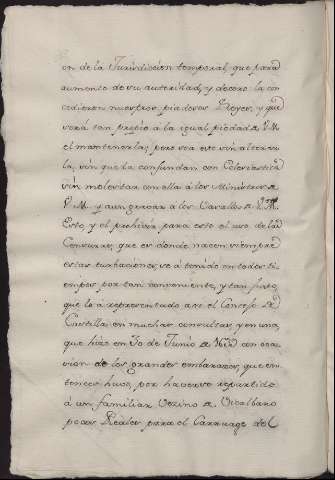 on de la Jurisdiccion temporal, que para
aumento de su autoridad, y decoro la con
cedieron nuestros piadosos Reyes, y que
será tan propio á la igual piedad de V.M.
el mantenerla; pero sea este sin alterar
la, sin que la confundan con Eclesiastica
sin molestar con ella á los Ministros de
V.M. y aun gravar á los Vasallos de V.M.
Esto, y el prohivir para esto el uso de las
Censuras, que es donde nacen siempre
estas turbaciones, se á tenido en todos ti
empos por tan conveniente, y tan justo,
que lo á representado asi el Consejo de
Castilla en muchas consultas, y en una
que hizo en 30 de Junio de con oca
sion de los grandes embarazos, que en
tonces huvo, por haverse repartido
á un familiar Vezino de Vicalbaro
pocos Reales para el Carruage del